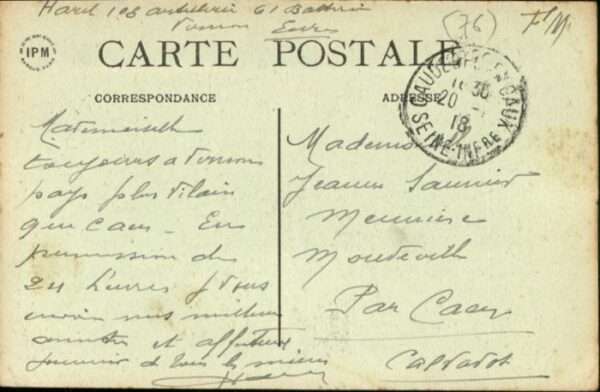 Harel 108 artillerie 61 Batterie
Vernon Eure
(76)
IPM
CARTE POSTALE
CORRESPONDANCE
ADRESSE
CAUX
18
SEINE-INFRE
Mademoiselle
toujours a Vernon
pays plus vilain
que Caen - En
permission de
24 heures je vous
envoie nos meilleurs
amitiés et affectueux
souvenir de tous les miens
Jeanne Saunier
Meunière
Mondeville
Par Caen
Calvados